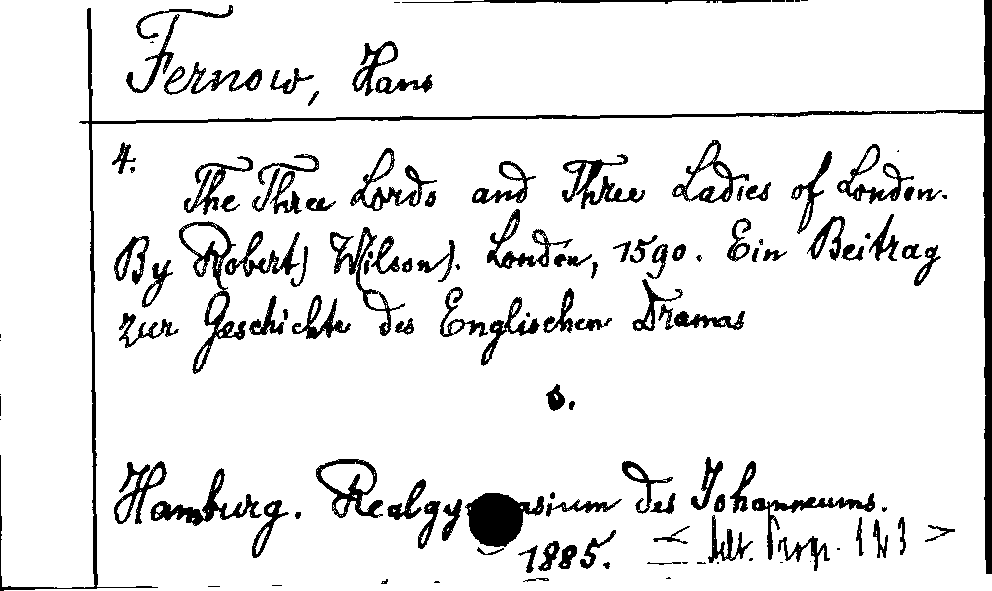 Fernow, Hans
4.
The Three Lords and Three Ladies of London.
By R(obert) W(ilson). London, 1590. Ein Beitrag
zur Geschichte des Englischen Dramas
s.
Hamburg. Realgy asium des Johanneums.
1885. < Prop. 123 >